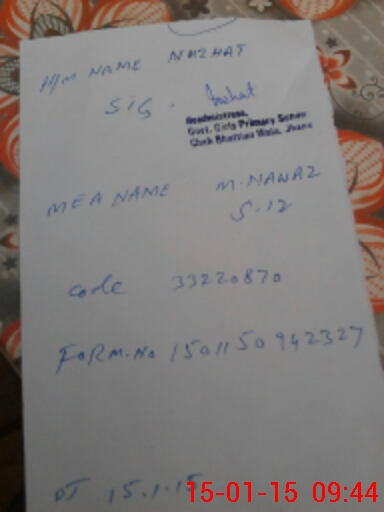 H/M NAME NUZHAT
SIG. Nuzhat
Headmistress,
Govt. Girls Primary School
Chak Bhattian Wala, Jhang
MEA NAME M.NAWAZ
S.12
Code 33220870
FORM.No 1501150942327
DT 15.1.15
15-01-15 09:44